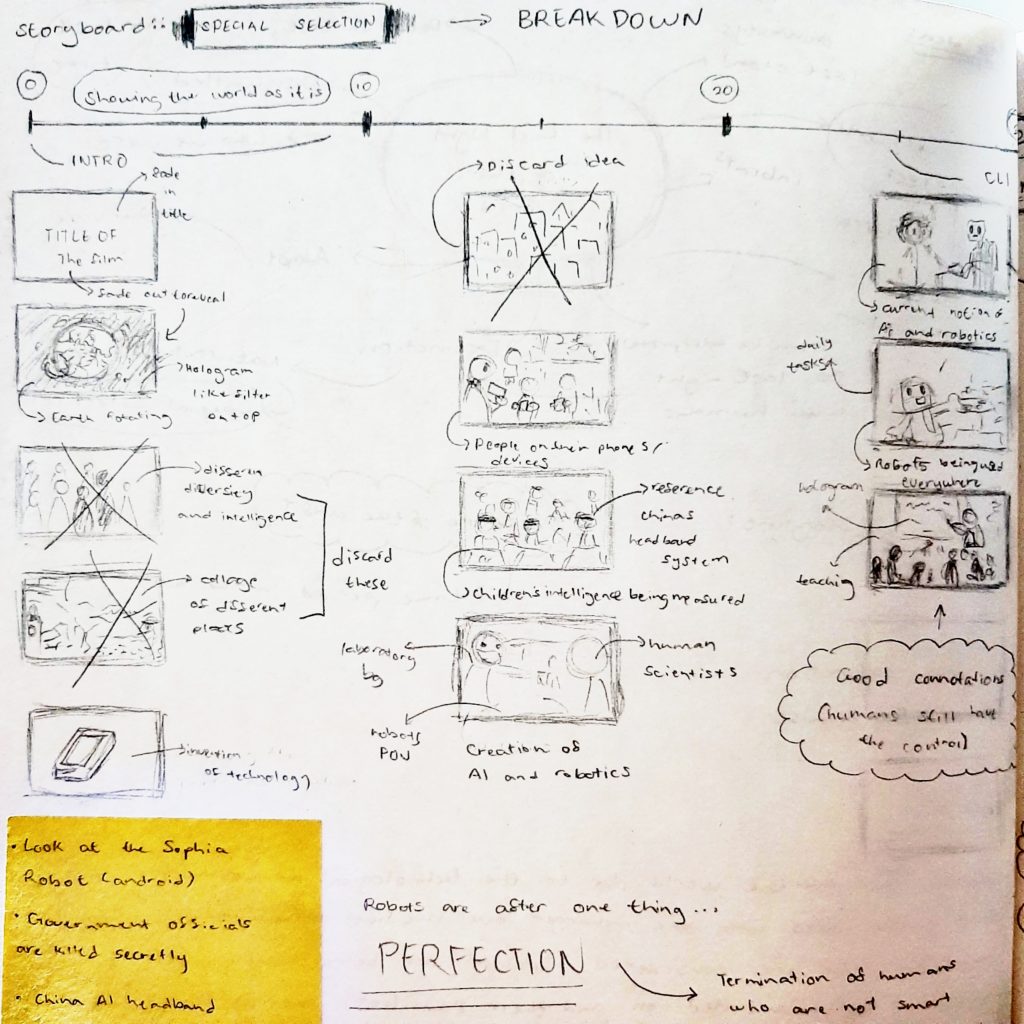 storyboard:: SPECIAL SELECTION → BREAKDOWN
0
Showing the world as it is
10
20
INTRO
fade
in
title
TITLE OF
The film
fade out to reveal
Hologram
like filter
on top
Earth rotating
diversity
and intelligence
collage
of different
places
discard
these
invention
of technology
Discard idea
People on their phones/
devices
reference
chinas
headband
system
Children's intelligence being measured
laboratory
bg
human
scientists
robots
POV
Creation of
AI and robotics
CLI
current notion of
Ai and robotics
daily
tasks
Robots being used
everywhere
hologram
teaching
Good connotations
(humans still have
the control)
• Look at the Sophia
Robot (android)
• Government officials
are killed secretly
• China AI headband
Robots are after one thing...
PERFECTION
Termination of humans
who are not smart